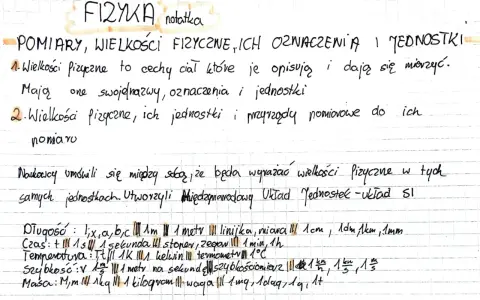 FIZYKA notatka
POMIARY, WIELKOŚCI FIZYCZNE, ICH OZNACZENIA I JEDNOSTKI
1. Wielkości fizyczne to cechy ciał które je opisują i dają się mierzyć.
Mają one swoje nazwy, oznaczenia i jednostki
2. Wielkości fizyczne, ich jednostki i przyrządy pomiarowe do ich
pomiaru
Naukowcy umówili się między sobą, że będą wyrażać wielkości fizyczne w tych
samych jednostkach. Utworzyli Międzynarodowy Układ Jednostek - układ SI
Długość : l, x, a, b, c ||| 1m ||| 1 metr ||| linijka, miara ||| 1cm, 1dm, 1km, 1mm
Czas: t ||| 1s ||| 1 sekunda ||| stoper, zegar ||| 1min, 1h
Temperatura: T, t ||| 1K ||| 1 kelwin ||| termometr ||| 1°C
Szybkość: v 1 m/s ||| 1 metr na sekundę ||| szybkościomierz |||
Masa: M, m ||| 1kg ||| 1 kilogram ||| waga ||| 1mg, 1dag, 1g, 1t